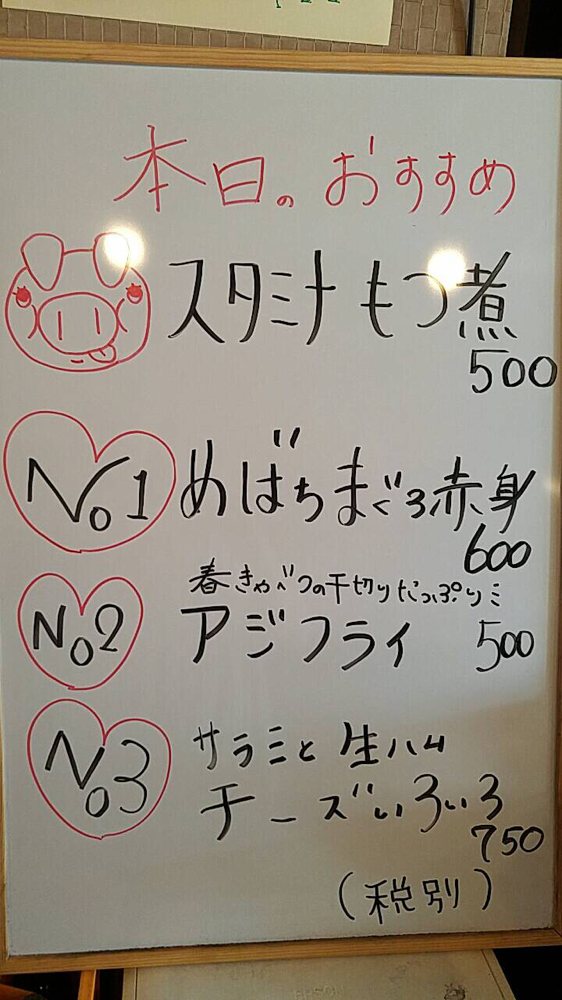 本日のおすすめ
スタミナもつ煮
500
No1 めばちまぐろ赤身
600
春きゃべつの千切りたっぷりミ
No2 アジフライ 500
No3 サラミと生ハム
チーズいろいろ
750
(税別)